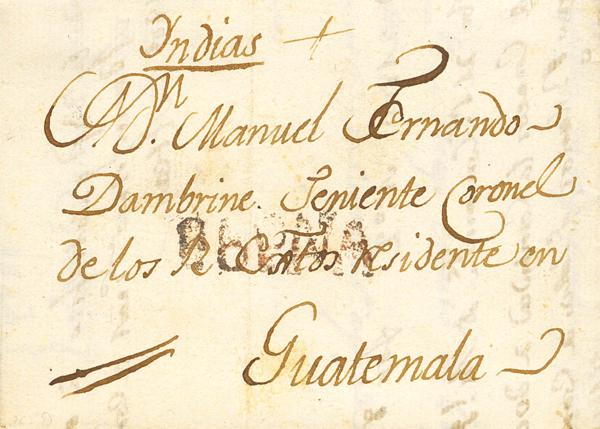 Indias +
A Dn. Manuel Fernando
Dambrine. Teniente Coronel
de los Rs. residente en
Guatemala